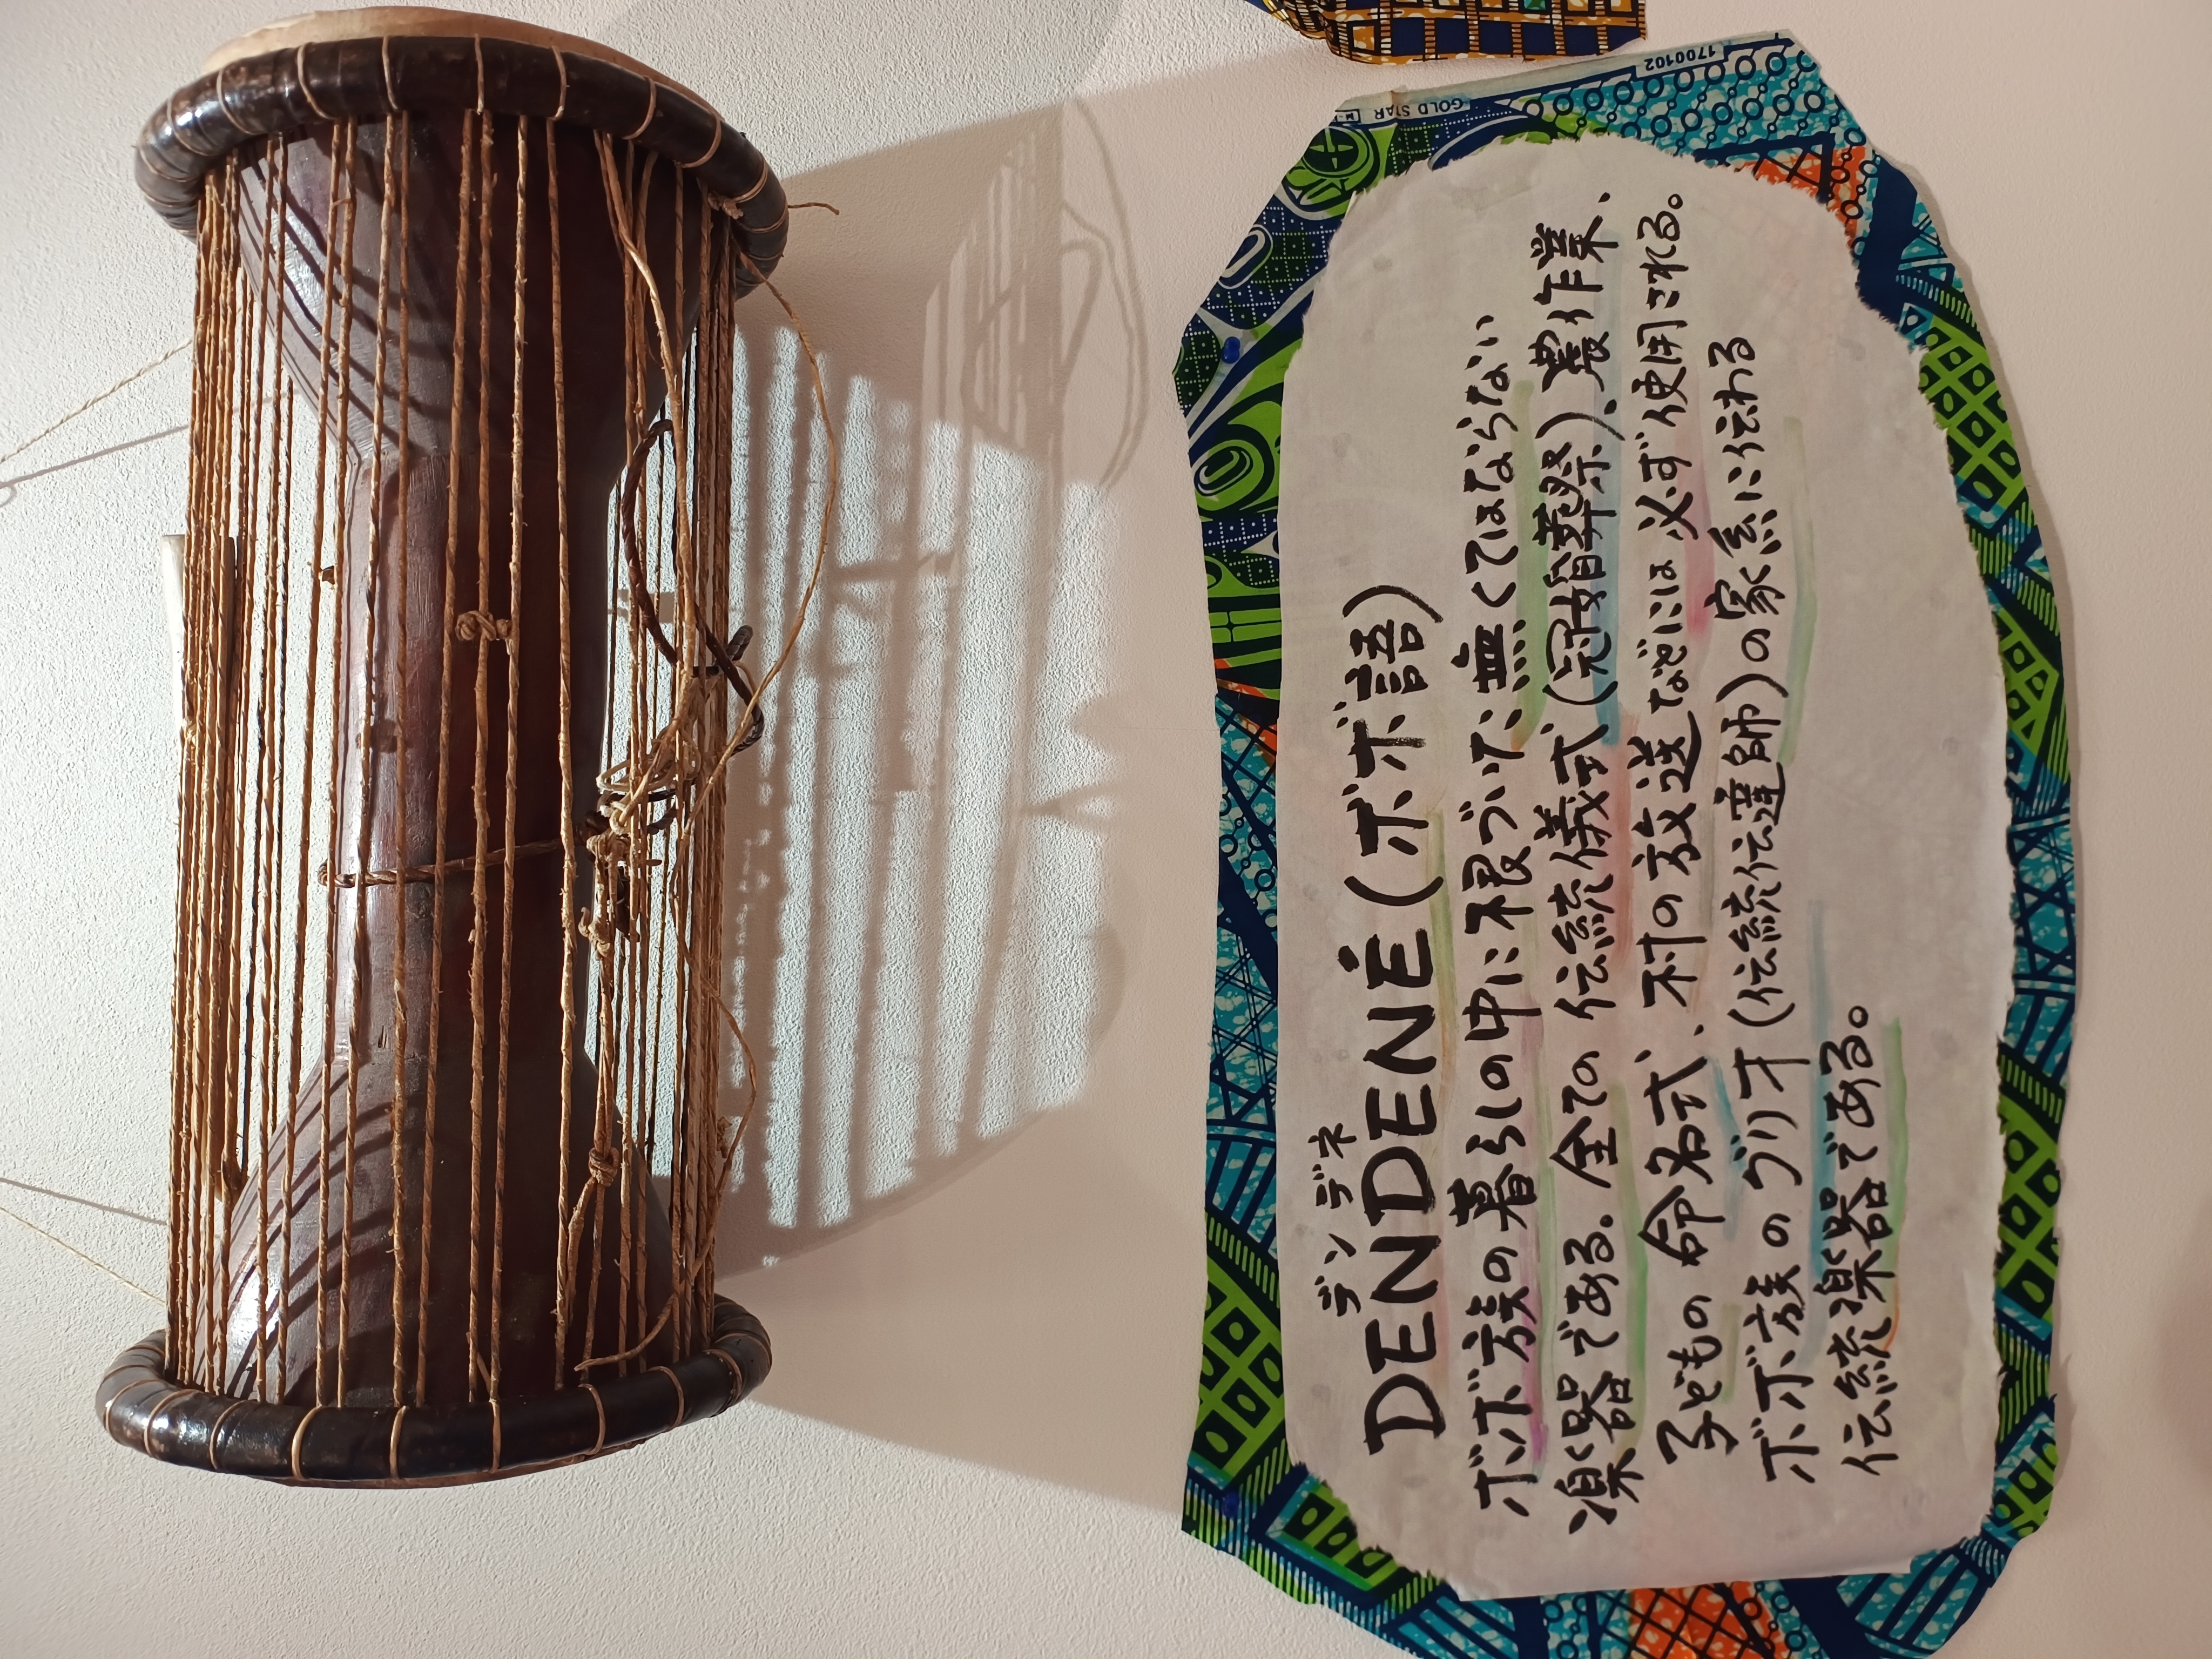 デンデネ
DENDENÉ (ボボ語)
ボボ族の暮らしの中に根づいた、無くてはならない
楽器である。全ての伝統儀式(冠婚葬祭)、農作業、
子どもの命名式、村の放送などには必ず使用される。
ボボ族のグリオ(伝統伝達師)の家系に伝わる
伝統楽器である。
GOLD STAR
1700102